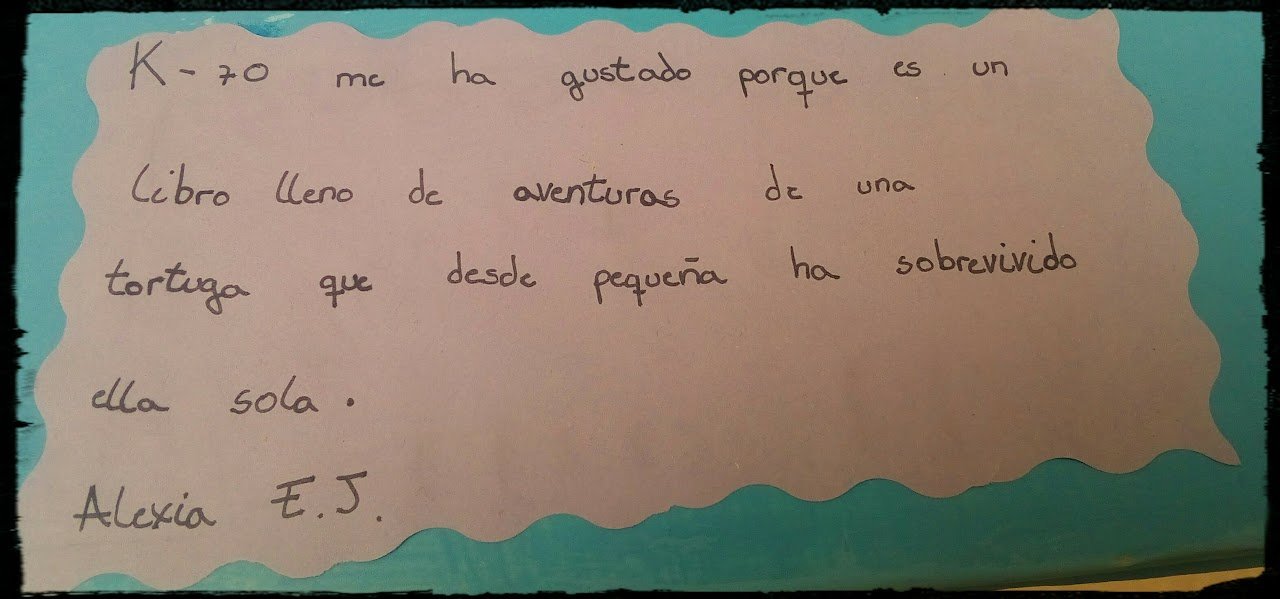 K-70 me ha gustado porque es un
libro lleno de aventuras de una
tortuga que desde pequeña ha sobrevivido
ella sola.
Alexia E.J.